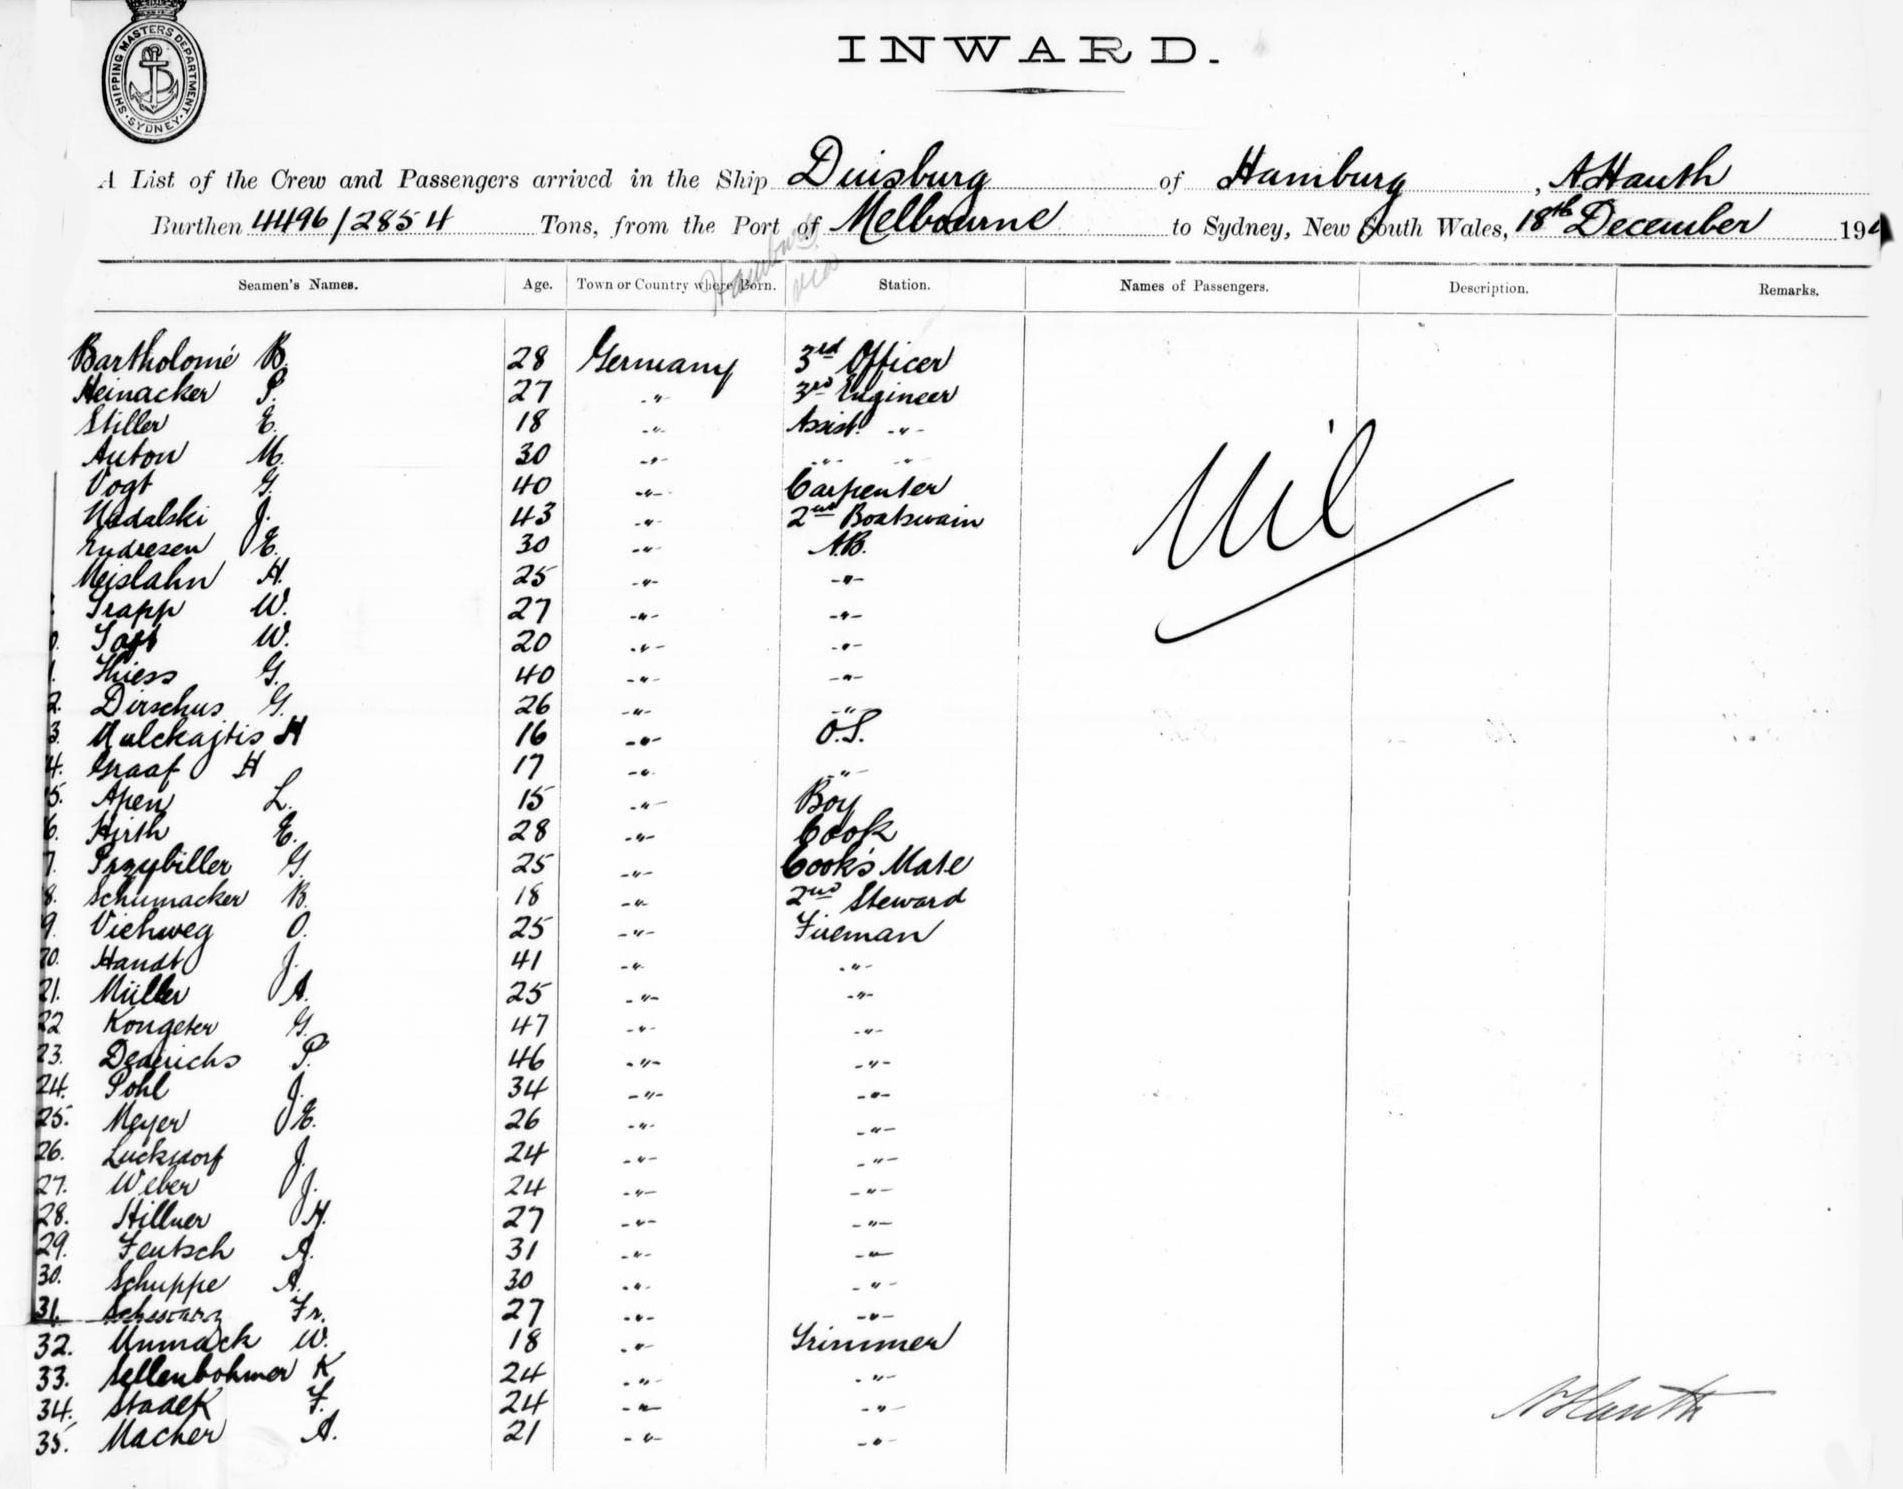 SHIPPING MASTERS DEPARTMENT
SYDNEY
INWARD.
A List of the Crew and Passengers arrived in the Ship Duisburg of Hamburg, A Hauth
Burthen 4496/2854 Tons, from the Port of Melbourne to Sydney, New South Wales, 18th December 19
Hamburg via
Seamen's Names. Age. Town or Country where Born. Station. Names of Passengers. Description. Remarks.
Bartholomé B. 28 Germany 3rd Officer
Heinacker P. 27 -"- 3rd Engineer
Stiller E. 18 -"- Assist. -"-
Anton M. 30 -"- -"- -"-
Vogt G. 40 -"- Carpenter
Nadalski J. 43 -"- 2nd Boatswain
Endresen E. 30 -"- A.B.
Nil
Meislahn H. 25 -"- -"-
Trapp W. 27 -"- -"-
0. W. 20 -"- -"-
1. Thiess G. 40 -"- -"-
2. Dirschus G. 26 -"- -"-
3. H 16 -"- O.S.
4. Graaf H 17 -"- -"-
5. Apen L. 15 -"- Boy
6. Hirth E. 28 -"- Cook
7. Przybiller G. 25 -"- Cook's Mate
8. Schumacker B. 18 -"- 2nd Steward
9. Viehweg O. 25 -"- Fireman
20. Handt J. 41 -"- -"-
21. Müller A. 25 -"- -"-
22 Kongeter G. 47 -"- -"-
23. P. 46 -"- -"-
24. Pohl J. 34 -"- -"-
25. Meyer E. 26 -"- -"-
26. Lucksdorf J. 24 -"- -"-
27. Weber J. 24 -"- -"-
28. Hillner H. 27 -"- -"-
29. Feutsch A. 31 -"- -"-
30. Schuppe A. 30 -"- -"-
31. Schwarz Fr. 27 -"- -"-
32. Unmack W. 18 -"- Trimmer
33. Sellenbohmer K 24 -"- -"-
34. Stadek F. 24 -"- -"-
35. Macher A. 21 -"- -"-
A Hauth